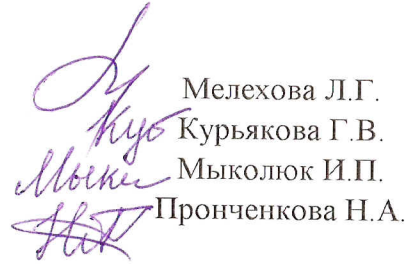 Мелехова Л.Г.
Курьякова Г.В.
Мыколюк И.П.
Пронченкова Н.А.